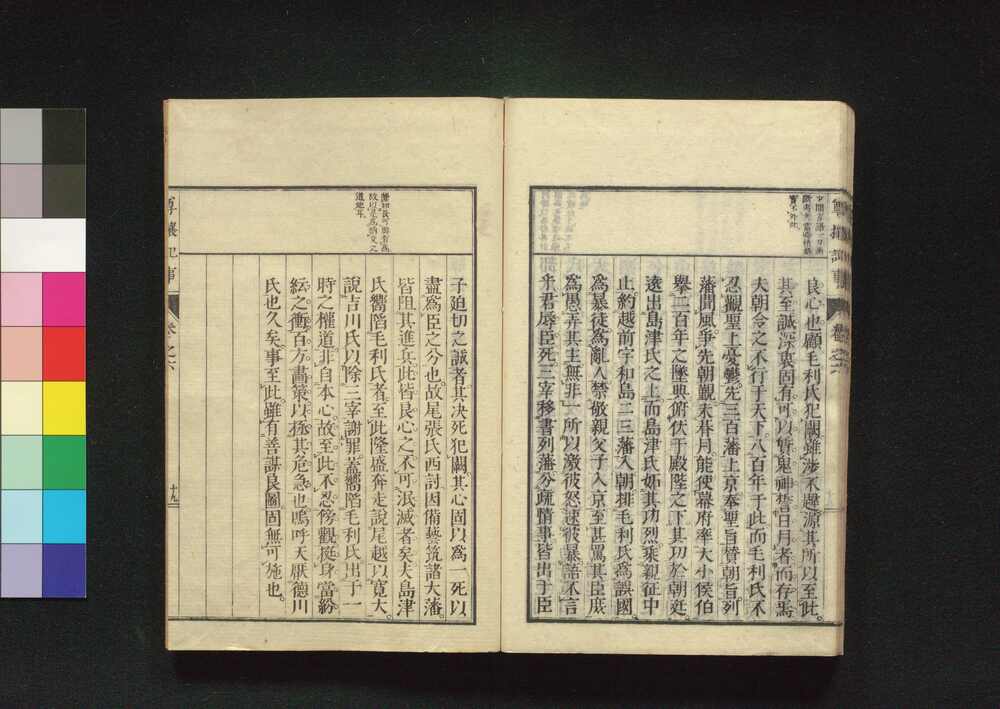 良心也顧毛利氏犯闕雖涉不遜源其所以至此
其至誠深衷固有可以質鬼神誓日月者而存焉
夫朝令之不行于天下八百年于此而毛利氏不
忍觀聖上憂鬱先三百藩上京奉聖旨賛朝旨列
藩聞風爭先朝覲未朞月能使幕府率大小侯伯
擧二百年之墜典俯伏于殿陛之下其功於朝廷
遠出島津氏之上而島津氏妬其功烈乘親征中
止約越前宇和島二三藩入朝排毛利氏爲誤國
爲暴徒爲亂人禁敬親父子入京至甚罵其臣庶
爲愚弄其主無非所以激彼怒速彼暴語不言
乎君辱臣死三宰移書列藩分疏情事皆出于臣
尊攘紀事
卷之六
十九
子廹切之誠者其决死犯闕其心固以爲一死以
盡爲臣之分也故尾張氏西討因備藝筑諸大藩
皆阻其進兵此皆良心之不可泯滅者矣夫島津
氏嚮階毛利氏者至此隆盛奔走說尾越以寬大
說吉川氏以除三宰謝罪蓋嚮階毛利氏出于一
時之權道非自本心故至此不忍傍觀挺身當紛
紜之衝百方畫策以拯其危急也嗚呼天厭德川
氏也久矣事至此雖有善謀良圖固無可施也
尊攘紀事
卷之六
十九